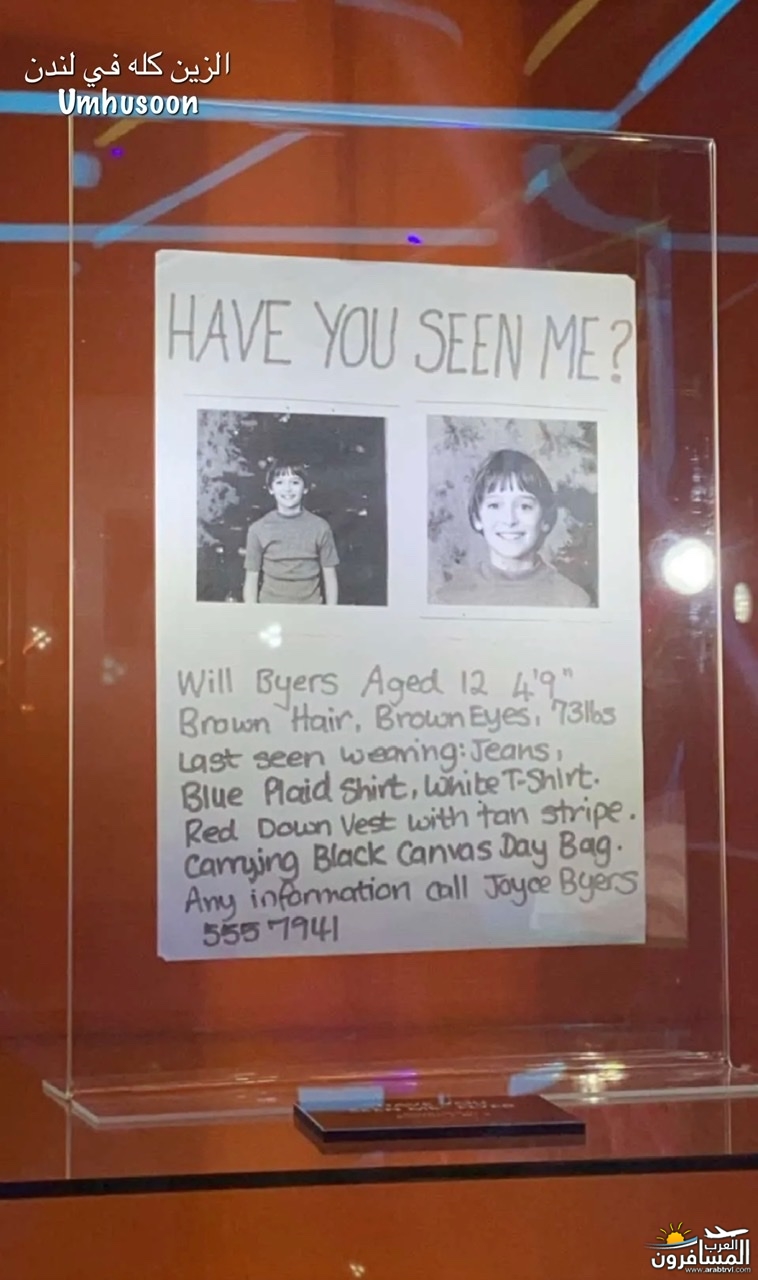 الزين كله في لندن
Umhusoon
HAVE YOU SEEN ME?
Will Byers Aged 12 4'9"
Brown Hair, Brown Eyes, 73lbs
Last seen wearing: Jeans,
Blue Plaid Shirt, White T-Shirt.
Red Down Vest with tan stripe.
Carrying Black Canvas Day Bag.
Any information call Joyce Byers
555 7941
العرب
المسافرون
www.arabtrvl.com